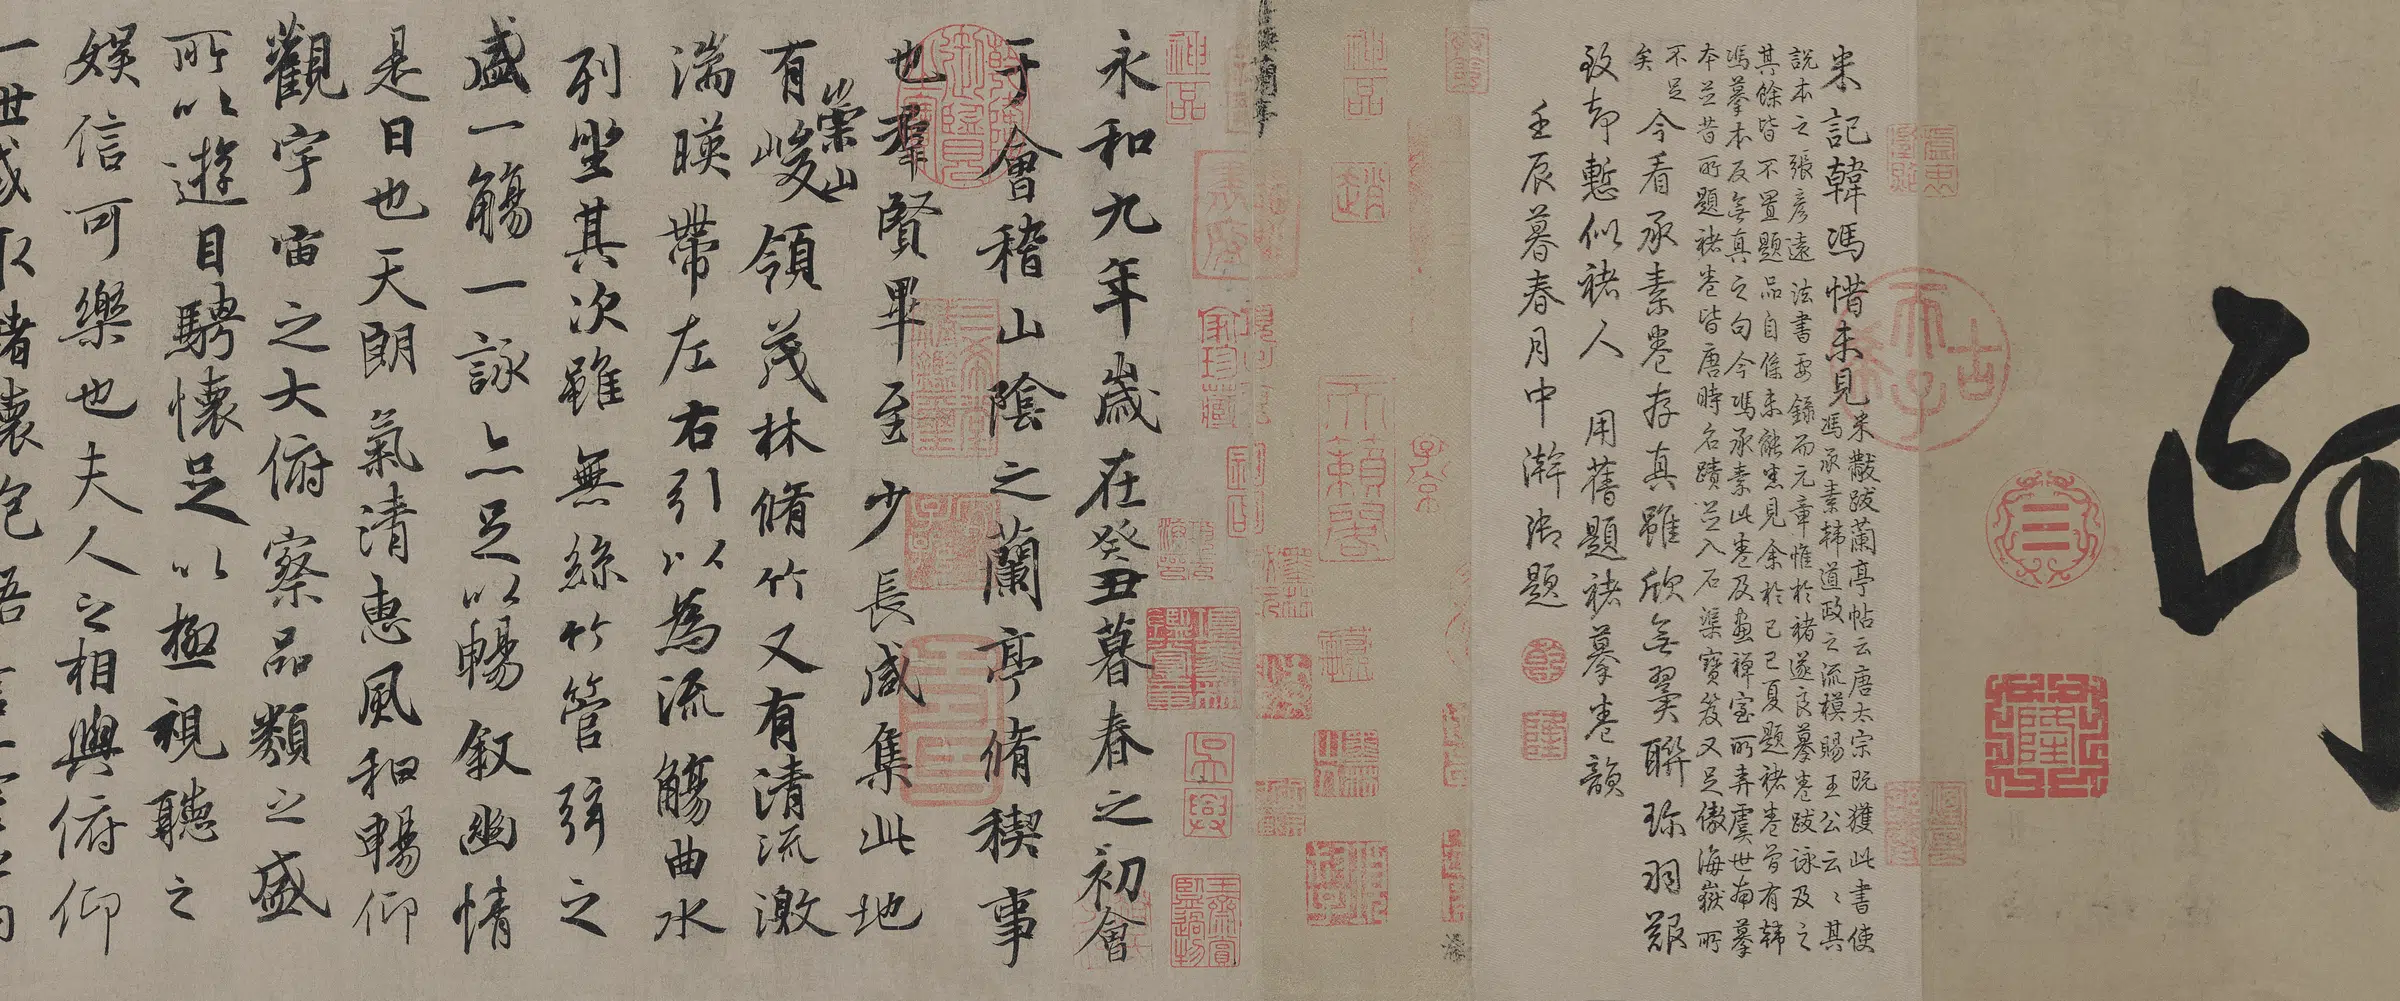 印
米記韓馮惜未見
米黻跋蘭亭帖云唐太宗既獲此書使
馮承素韓道政之流模賜王公云〻其
說本之張彥遠法書要錄而元章惟於褚遂良摹卷跋詠及之
其餘皆不置題品自係未能悉見余於己巳夏題褚卷曾有韓
馮摹本反無真之句今馮承素此卷及畫禪室所弆虞世南摹
本並昔所題褚卷皆唐時名蹟並入石渠寶笈又足傲海嶽所
不足
矣
今看承素卷存真雖欣無翼聯珍羽艱
致却慙似褚人 用舊題褚摹卷韻
壬辰暮春月中澣御題
子京
神品
趙
天籟閣
神品
永和九年歲在癸丑暮春之初會
于會稽山陰之蘭亭脩稧事
也羣賢畢至少長咸集此地
有崇山峻領茂林脩竹又有清流激
湍暎帶左右引以為流觴曲水
列坐其次雖無絲竹管弦之
盛一觴一詠亦足以暢敘幽情
是日也天朗氣清惠風和暢仰
觀宇宙之大俯察品類之盛
所以遊目騁懷足以極視聽之
娛信可樂也夫人之相與俯仰
一世或取諸懷抱悟言一室之內